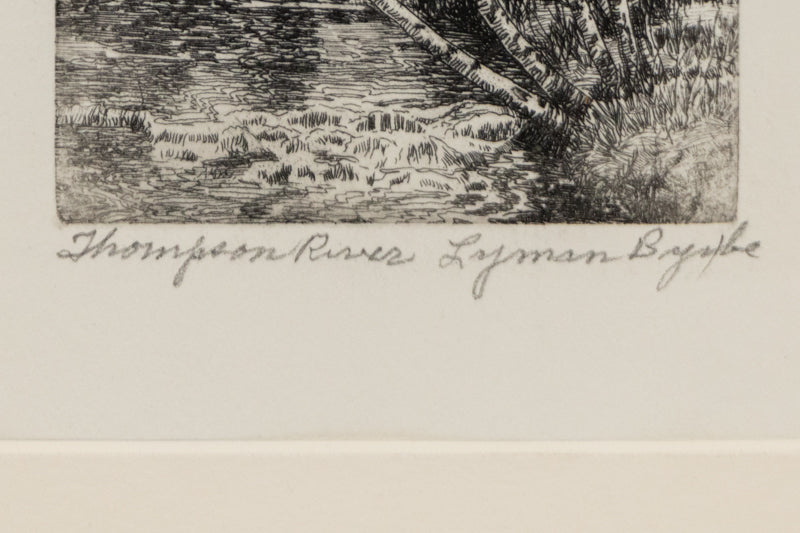 Thompson River Lyman Byxbe